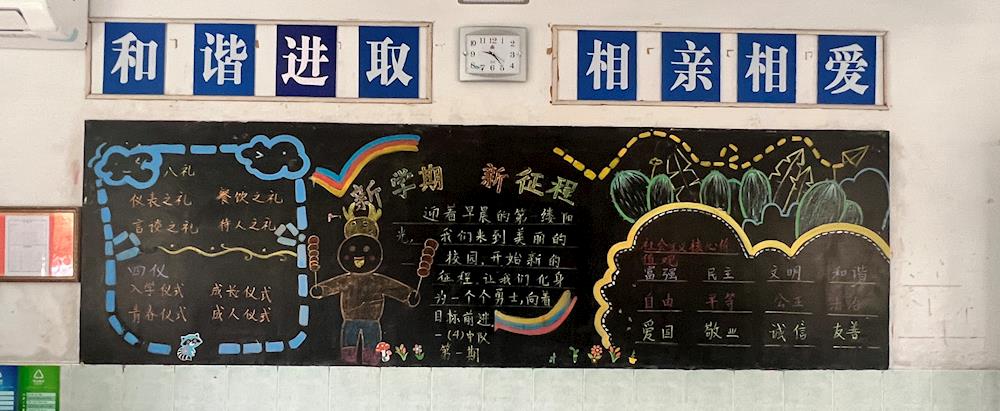 和谐进取
相亲相爱
八礼
仪表之礼 餐饮之礼
言谈之礼 待人之礼
四仪
入学仪式 成长仪式
青春仪式 成人仪式
新学期 新征程
迎着早晨的第一缕阳
光,我们来到美丽的
校园,开始新的
征程,让我们化身
为一个个勇士,向着
目标前进
一(4)中队
第一期
社会主义核心价
值观
富强 民主 文明 和谐
自由 平等 公正 法治
爱国 敬业 诚信 友善